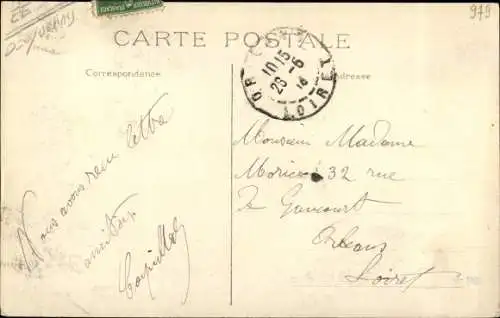 979
CARTE POSTALE
Correspondance
Adresse
OR
10 15
28-6
14
LOIRET
Nous avons reçu lettre
amitiés
Monsieur Madame
Morice 32 rue
De Gaucourt
Orléans
Loiret